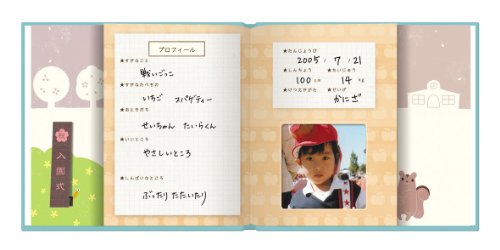 入園式
プロフィール
★すきなこと
戦いごっこ
★すきなたべもの
いちご スパゲティー
★おともだち
せいちゃん たいらくん
★いいところ
やさしいところ
★しんぱいなところ
ぶったり たたいたり
★たんじょうび
2005 / 7 / 21
★しんちょう ★たいじゅう
100 cm 14 kg
★けつえきがた ★せいざ
かにざ